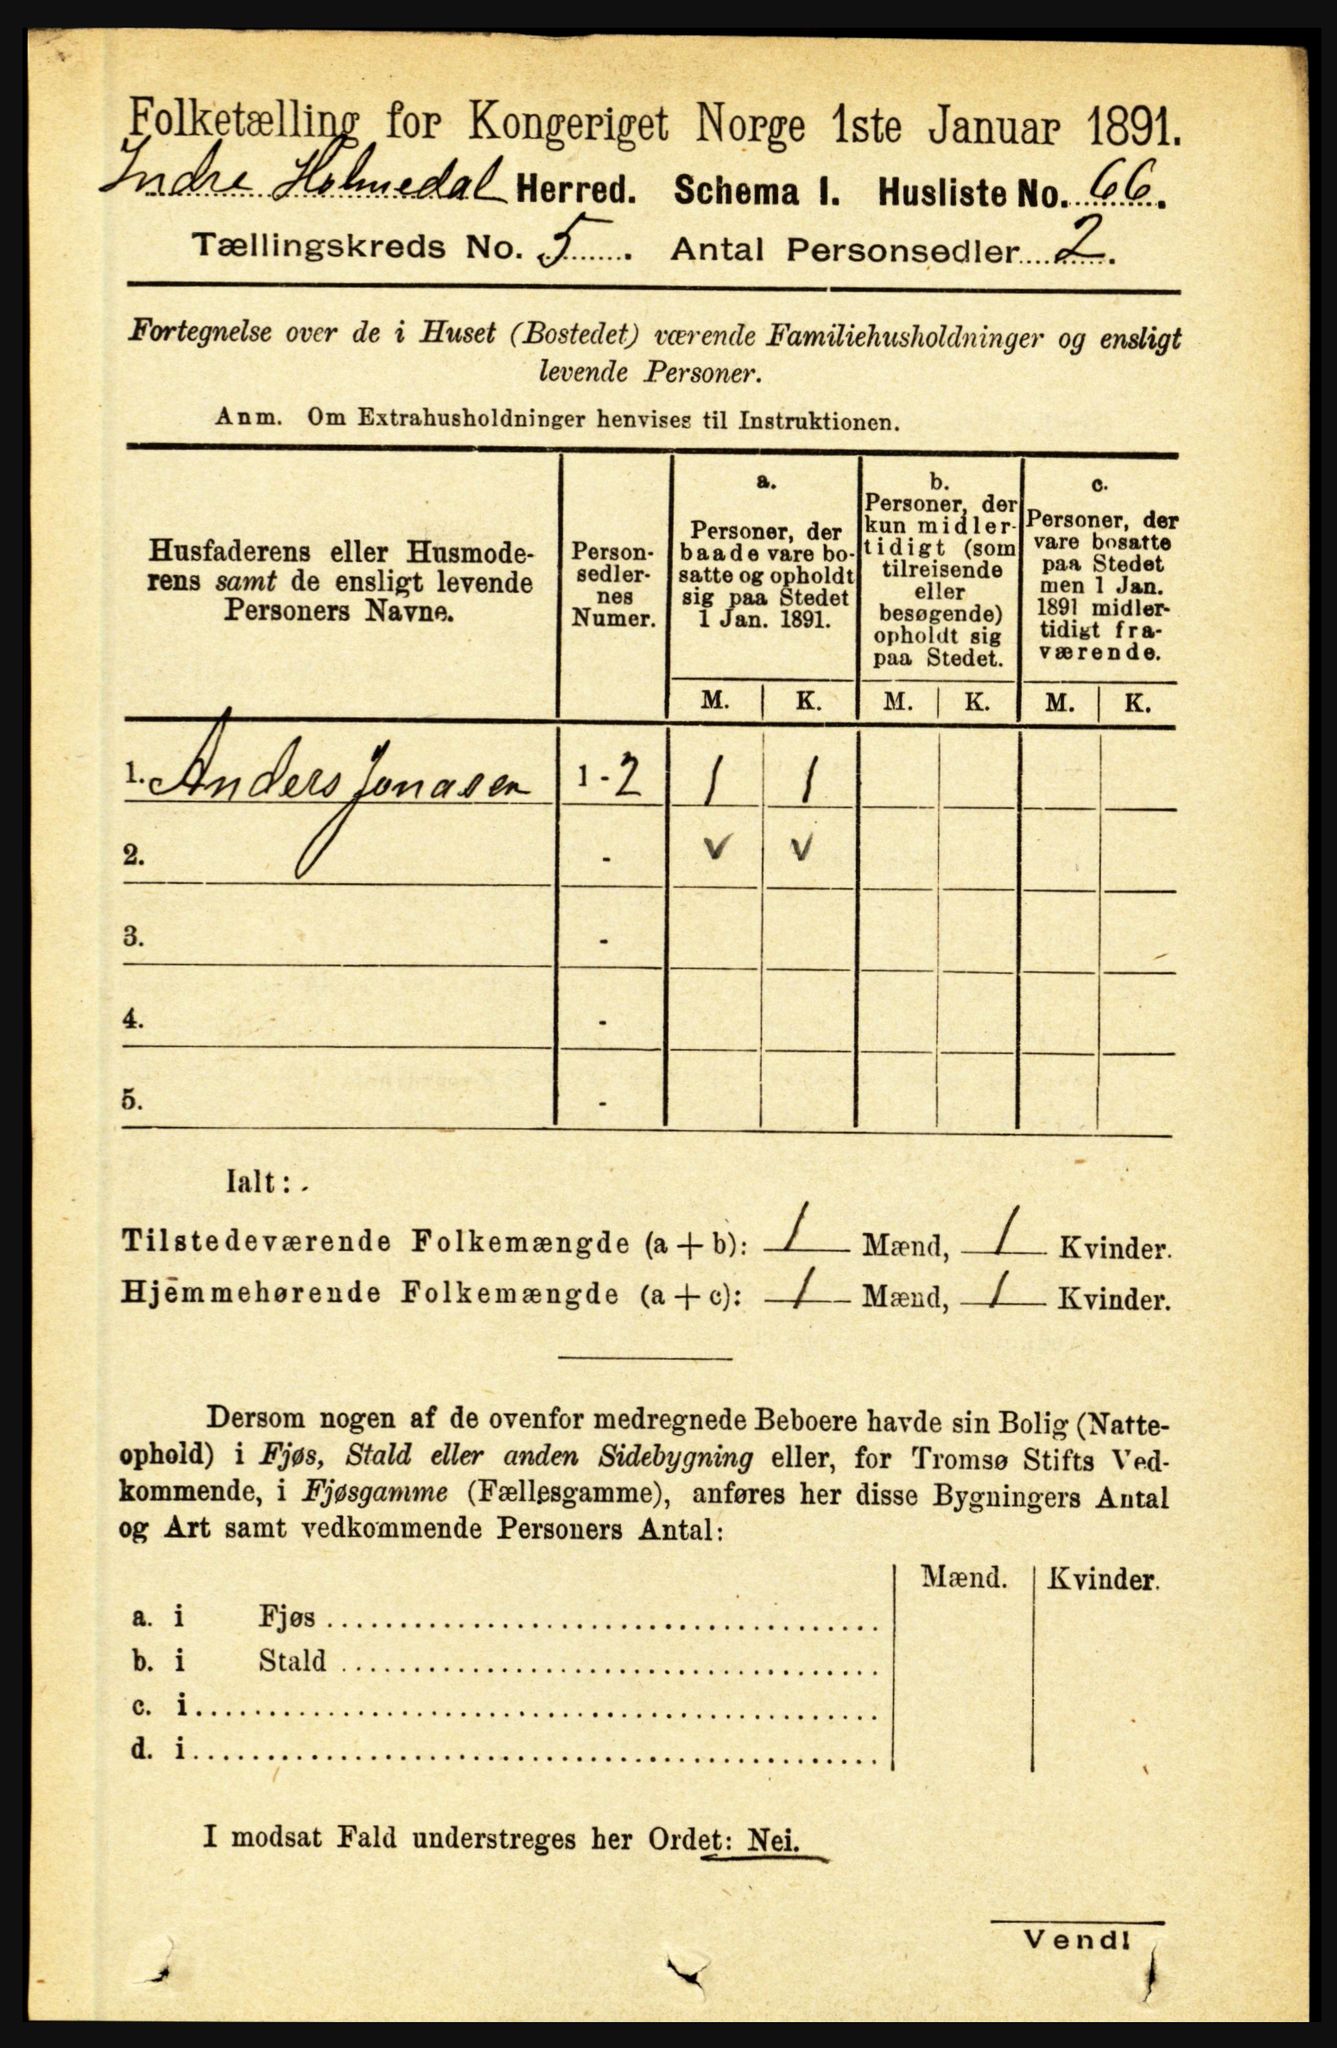 Folketælling for Kongeriget Norge 1ste Januar 1891.
Indre Holmedal Herred. Schema I. Husliste No. 66.
Tællingskreds No. 5. Antal Personsedler 2.
Fortegnelse over de i Huset (Bostedet) værende Familiehusholdninger og ensligt
levende Personer.
Anm. Om Extrahusholdninger henvises til Instruktionen.
Husfaderens eller Husmode-
rens samt de ensligt levende
Personers Navne.
Person-
sedler-
nes
Numer.
a.
Personer, der
baade vare bo-
satte og opholdt
sig paa Stedet
1 Jan. 1891.
b.
Personer, der
kun midler-
tidigt (som
tilreisende
eller
besøgende)
opholdt sig
paa Stedet.
c.
Personer, der
vare bosatte
paa Stedet
men 1 Jan.
1891 midler-
tidigt fra-
værende.
M. K. M. K. M. K.
1. Anders Jonasen 1 - 2 1 1
2. - v v
3. -
4. -
5. -
Ialt:
Tilstedeværende Folkemængde (a + b): 1 Mænd, 1 Kvinder.
Hjemmehørende Folkemængde (a + c): 1 Mænd, 1 Kvinder.
Dersom nogen af de ovenfor medregnede Beboere havde sin Bolig (Natte-
ophold) i Fjøs, Stald eller anden Sidebygning eller, for Tromsø Stifts Ved-
kommende, i Fjøsgamme (Fællesgamme), anføres her disse Bygningers Antal
og Art samt vedkommende Personers Antal:
Mænd. Kvinder.
a. i Fjøs
b. i Stald
c. i
d. i
I modsat Fald understreges her Ordet: Nei.
Vend!